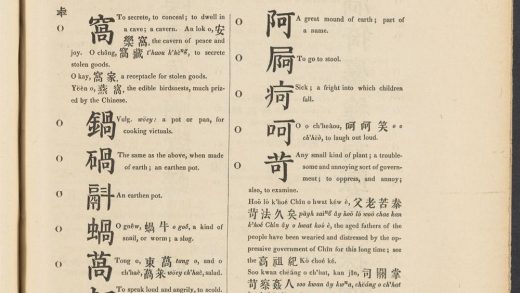 O
窩
To secrete, to conceal; to dwell in
a cave; a cavern. An lok o, 安
樂窩, the cavern of peace and
joy. O chông, 窩藏 t'haou k'hě^ng, to secrete
stolen goods.
O kay, 窩家, a receptacle for stolen goods.
Yëèn o, 燕窩, the edible birdsnests, much priz-
ed by the Chinese.
O
鍋
Vulg. wöey: a pot or pan, for
cooking victuals.
O
The same as the above, when made
of earth; an earthen pot.
O
An earthen pot.
O
蝸
O guêw, 蝸牛 o goô, a kind of
snail, or worm; a slug.
O
萵
Tong o, 東萵 tang o, and o
ch'haè, 萵菜 wöey ch'haè, salad.
To speak loud and angrily, to scold.
O
阿
A great mound of earth; part of
a name.
O
屙
To go to stool.
O
疴
Sick; a fright into which children
fall.
O
呵
O o ch'heàou, 呵呵笑 o o
ch'hëò, to laugh out loud.
O
苛
Any small kind of plant; a trouble-
some and annoying sort of govern-
ment; to oppress, and annoy;
also, to examine.
Hoō lò k'hoé Chîn o hwat kéw è, 父老苦秦
苛法久矣
k'hoé Chîn áy o hwat koò è, the aged fathers of the
people have been wearied and distressed by the op-
pressive government of Chîn for this long time; see
the 高祖紀 Ko choé kè.
Soo kwan chéàng o ch'hat, kan jîn, 司關掌
苛察姦人